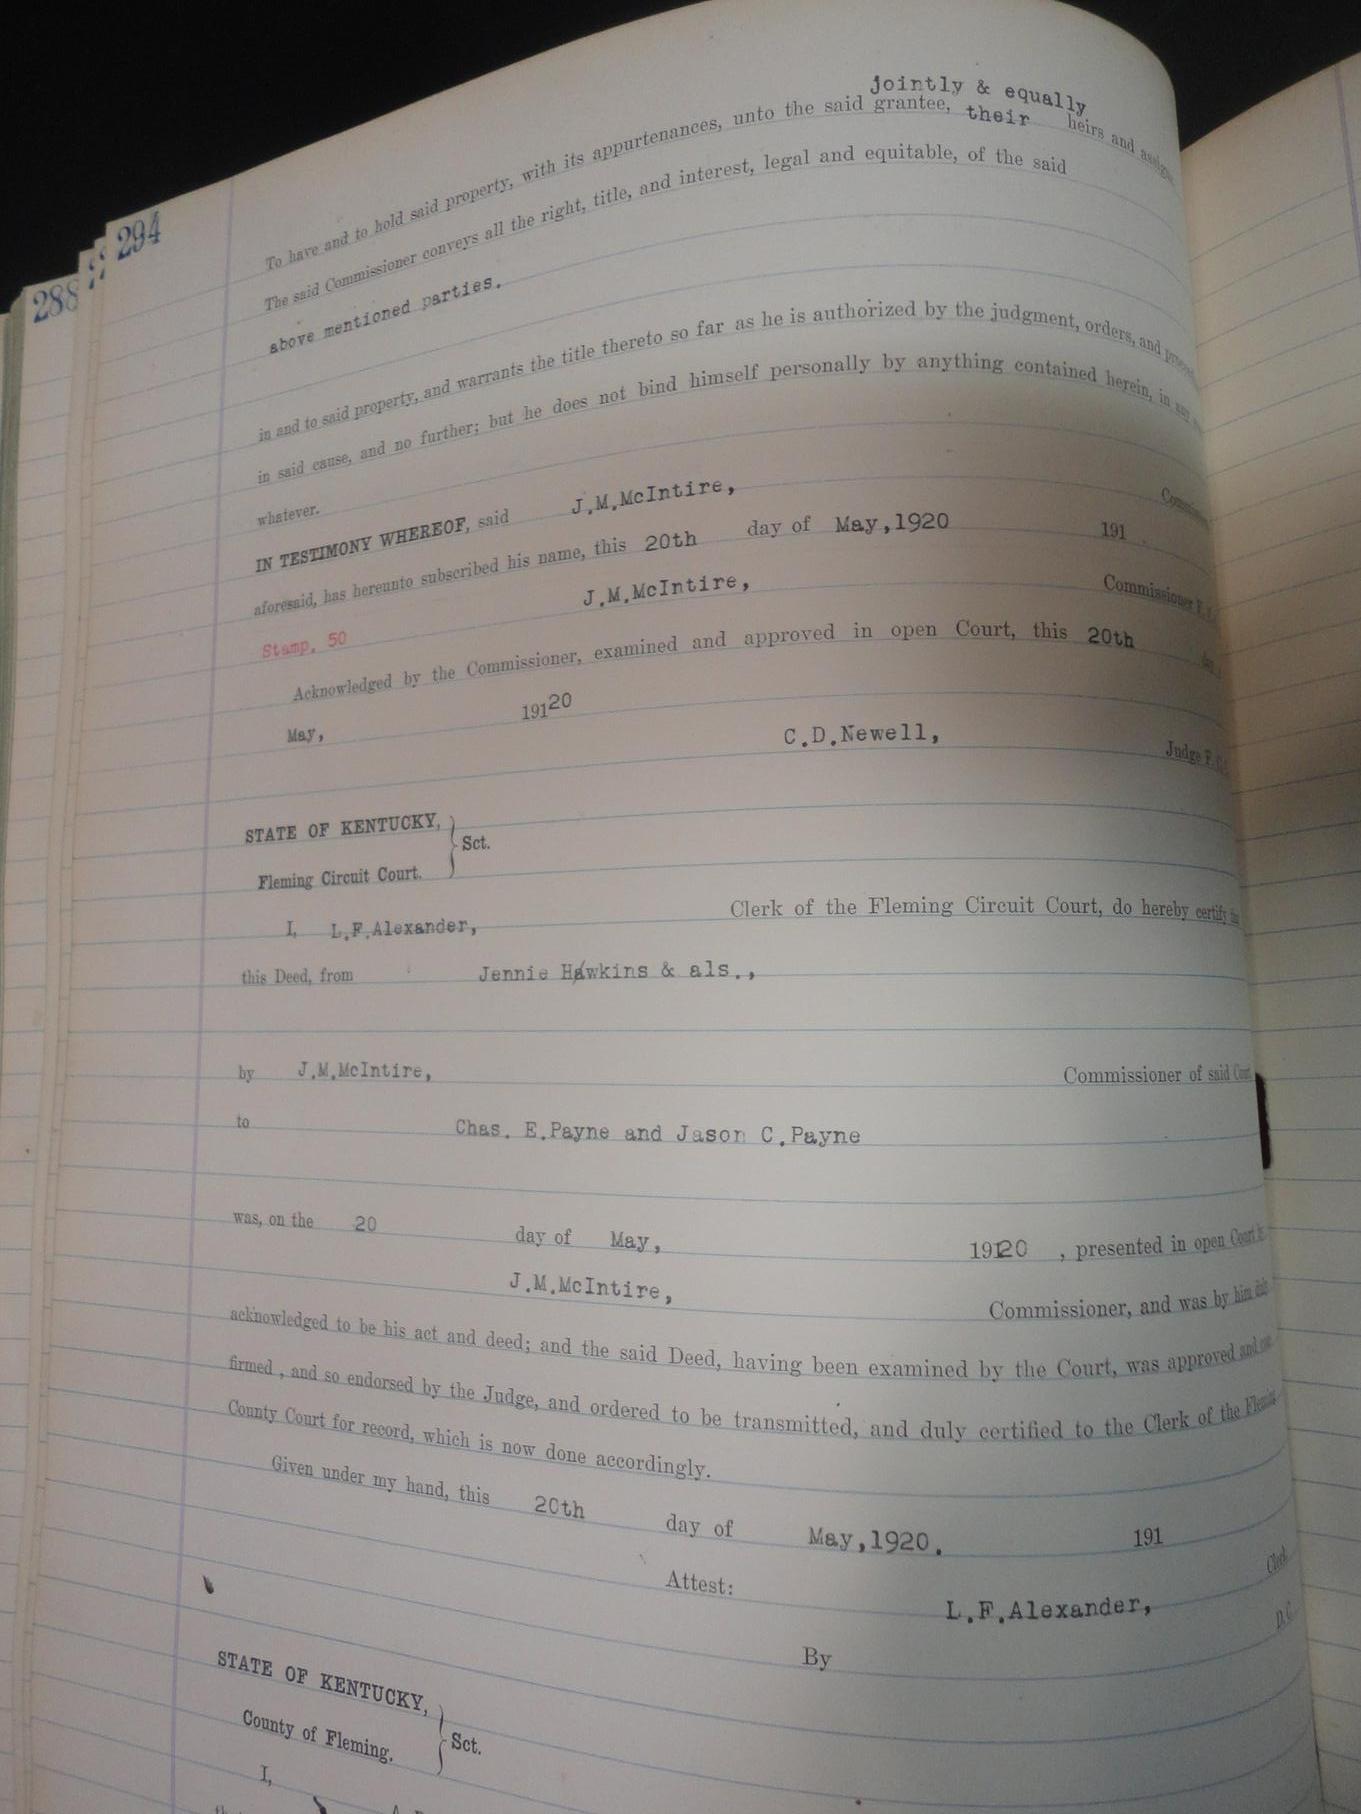 294
288
jointly & equally
To have and to hold said property, with its appurtenances, unto the said grantee, their heirs and assigns
The said Commissioner conveys all the right, title, and interest, legal and equitable, of the said
above mentioned parties.
in and to said property, and warrants the title thereto so far as he is authorized by the judgment, orders, and
in said cause, and no further; but he does not bind himself personally by anything contained herein, in any
whatever.
IN TESTIMONY WHEREOF, said J.M.McIntire,
aforesaid, has hereunto subscribed his name, this 20th day of May,1920 191
J.M.McIntire, Commissioner F.
Stamp. 50
Acknowledged by the Commissioner, examined and approved in open Court, this 20th
May, 19120
C.D.Newell, Judge F.C.
STATE OF KENTUCKY,
Sct.
Fleming Circuit Court.
I, L.F.Alexander, Clerk of the Fleming Circuit Court, do hereby certify
this Deed, from Jennie Hawkins & als.,
by J.M.McIntire, Commissioner of said Court
to Chas. E.Payne and Jason C.Payne
was, on the 20 day of May, 19120 , presented in open Court
J.M.McIntire, Commissioner, and was by him
acknowledged to be his act and deed; and the said Deed, having been examined by the Court, was approved and
firmed, and so endorsed by the Judge, and ordered to be transmitted, and duly certified to the Clerk of the Fleming
County Court for record, which is now done accordingly.
Given under my hand, this 20th day of May,1920. 191
Attest: L.F.Alexander, Clerk
By D.C.
STATE OF KENTUCKY,
Sct.
County of Fleming.
I,